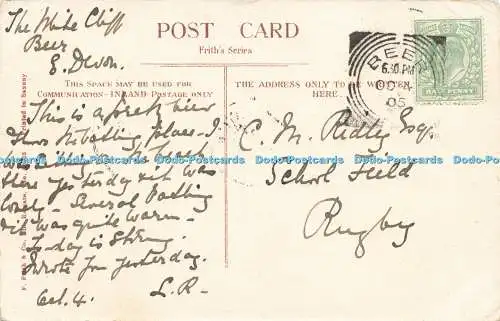 The White Cliff
Beer
S. Devon.
POST CARD
Frith's Series
THIS SPACE MAY BE USED FOR
COMMUNICATION - INLAND POSTAGE ONLY
THE ADDRESS ONLY TO BE WRITTEN
HERE.
BEER
6.30 PM
OC 4
05
HALFPENNY
This is a fresh view
place - I
was sitting on the beach
there yesterday & it was
lovely - Several Bathing
it was quite warm -
To-day is
Wrote you yesterday.
Oct. 4. L.R-
C. M. Ridley Esq.
School Field
Rugby
Dodo-Postcards Dodo-Postcards Dodo-Postcards Dodo-Postcards
Printed in Saxony